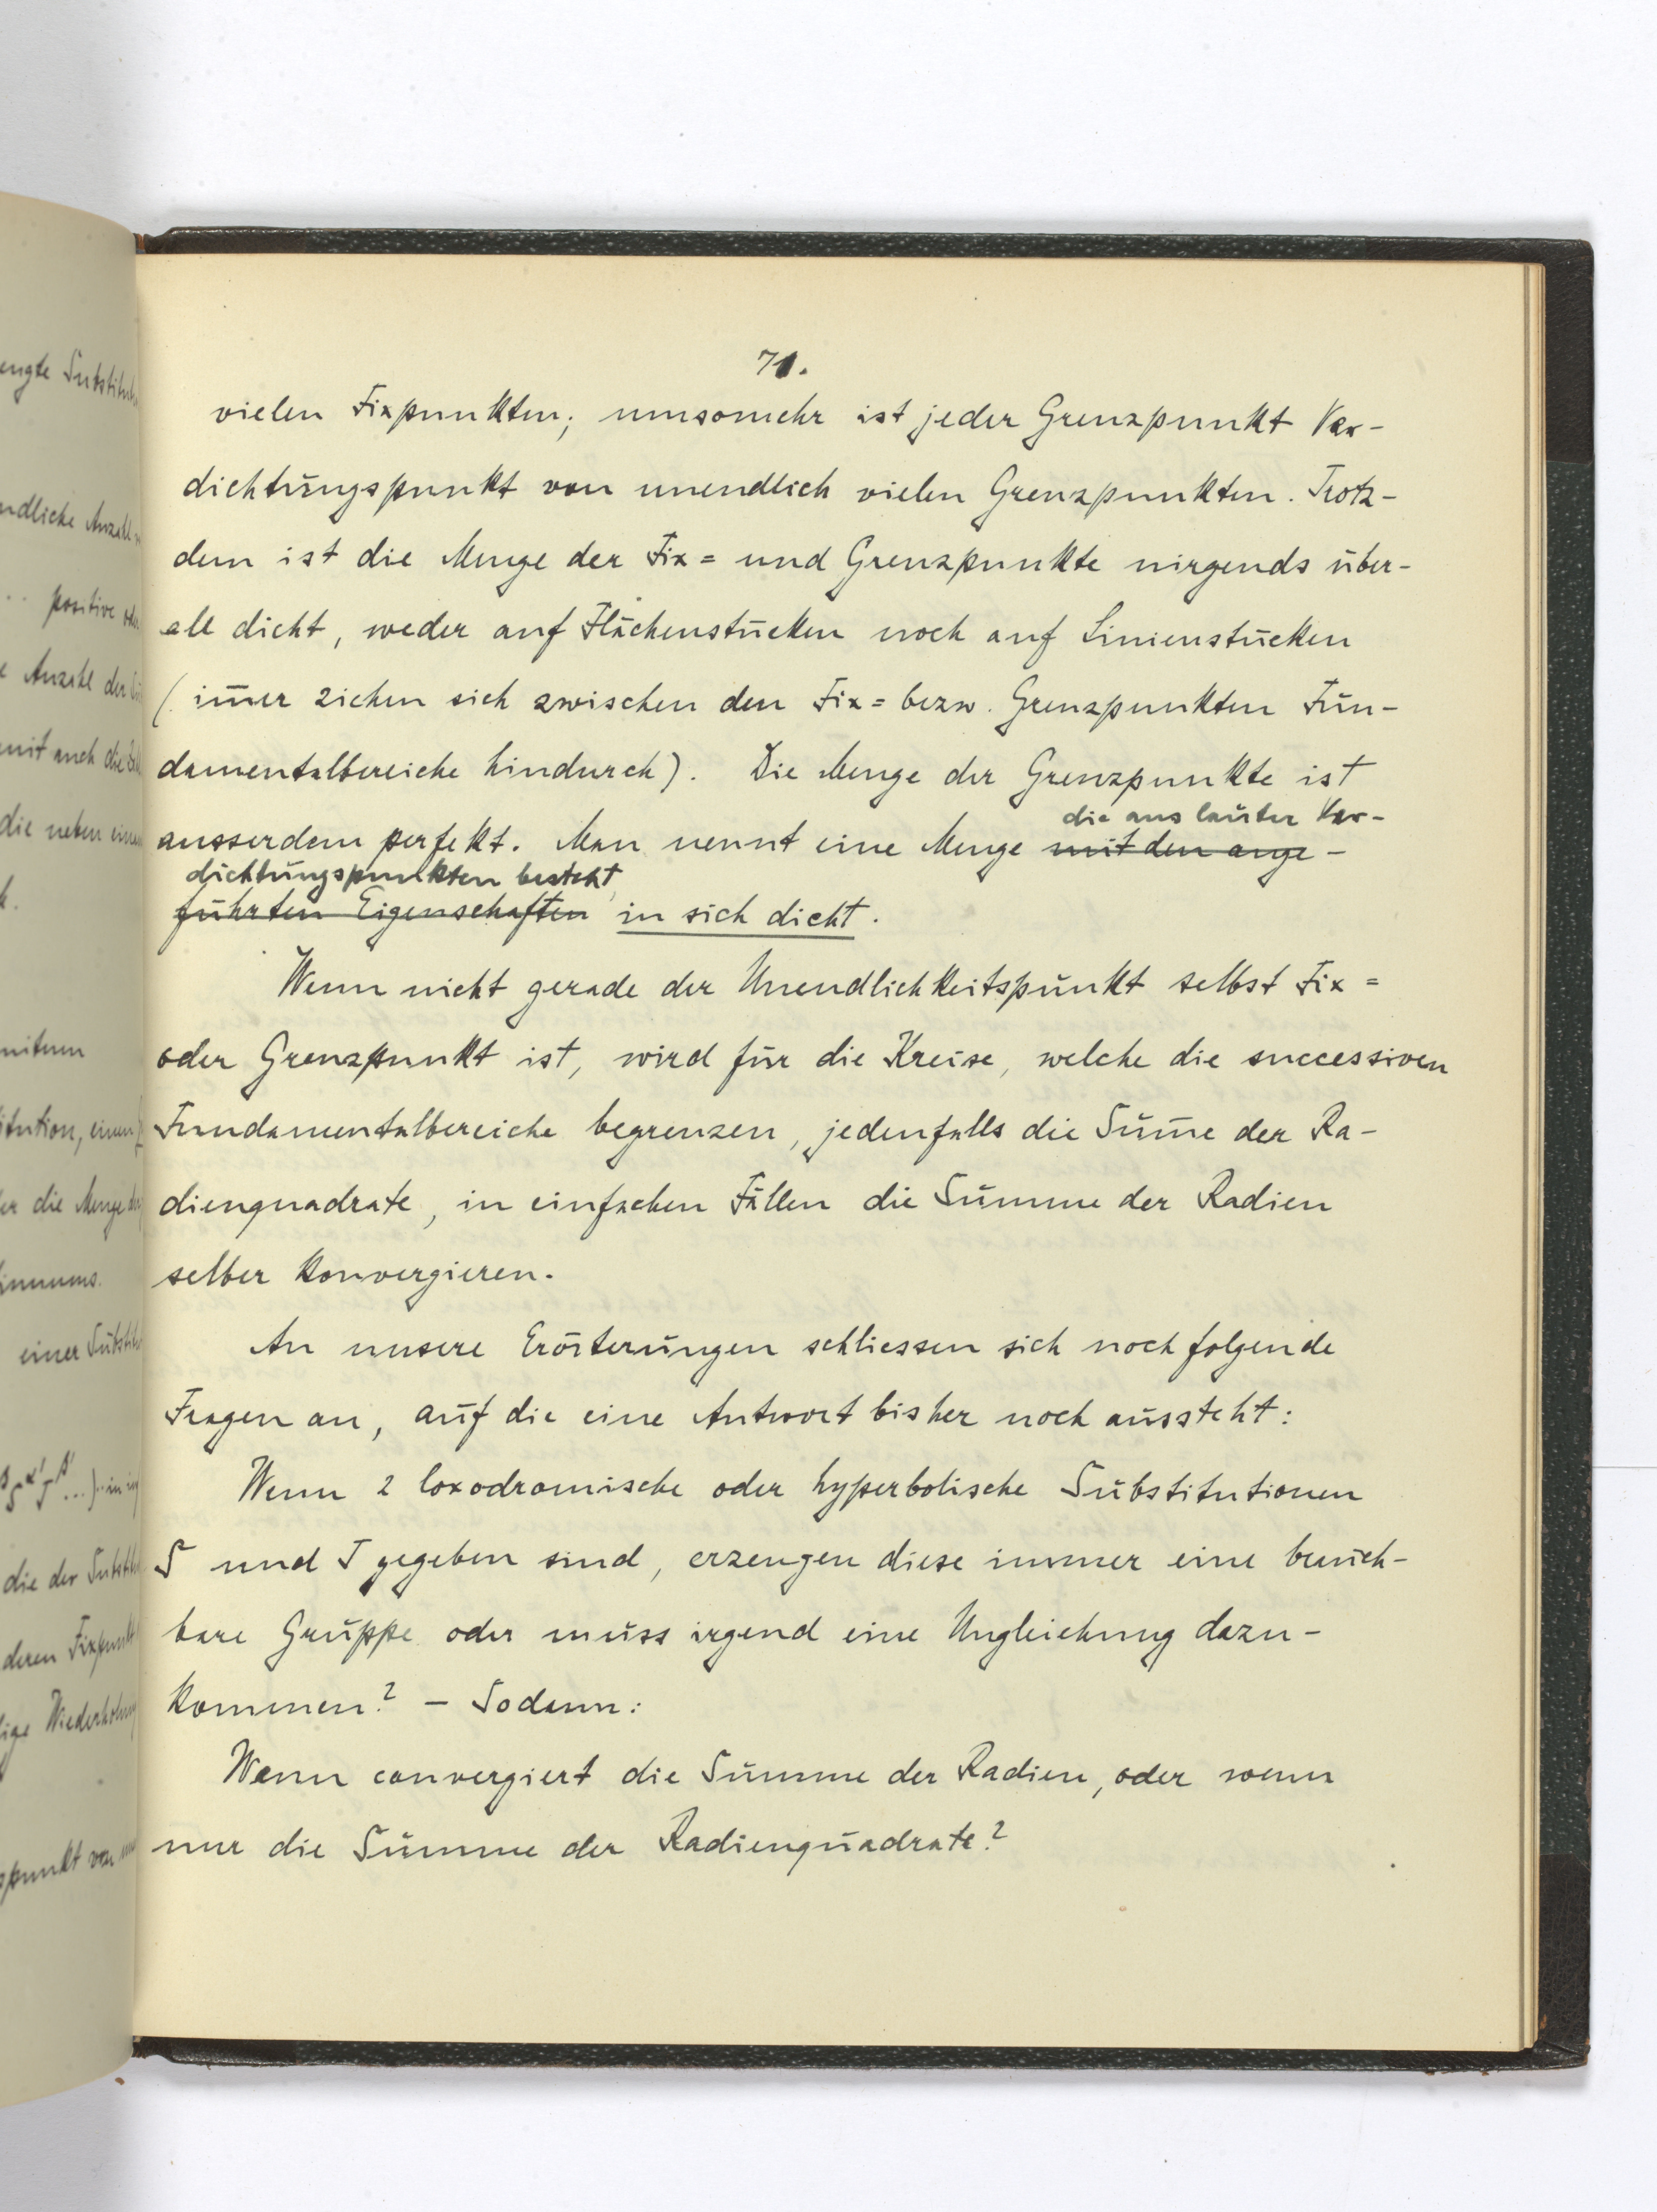 71.
vielen Fixpunkten; umsomehr ist jeder Grenzpunkt Ver-
dichtungspunkt von unendlich vielen Grenzpunkten. Trotz-
dem ist die Menge der Fix= und Grenzpunkte nirgends über-
all dicht, weder auf Flächenstücken noch auf Linienstücken
(im̅er ziehen sich zwischen den Fix= bezw. Grenzpunkten Fun-
damentalbereiche hindurch). Die Menge der Grenzpunkte ist
die aus lauter Ver-
ausserdem perfekt. Man nennt eine Menge mit den ange-
dichtungspunkten besteht,
führten Eigenschaften in sich dicht.
Wenn nicht gerade der Unendlichkeitspunkt selbst Fix=
oder Grenzpunkt ist, wird für die Kreise, welche die successiven
Fundamentalbereiche begrenzen, jedenfalls die Sum̅e der Ra-
dienquadrate, in einfachen Fällen die Summe der Radien
selber konvergieren.
An unsere Erörterungen schliessen sich noch folgende
Fragen an, auf die eine Antwort bisher noch aussteht:
Wenn 2 loxodromische oder hyperbolische Substitutionen
S und T gegeben sind, erzeugen diese immer eine brauch-
bare Gruppe oder muss irgend eine Ungleichung dazu-
kommen? – Sodann:
Wann convergiert die Summe der Radien, oder wenn
nur die Summe der Radienquadrate?
engte Substitut
endliche Anzahl
positive
Anzahl der
mit auch die
die neben einan
h.
nitum
itution, einen
er die Menge
einer Substit
die der Substit
deren Fixpunkt
lige Wiederholung
spunkt von